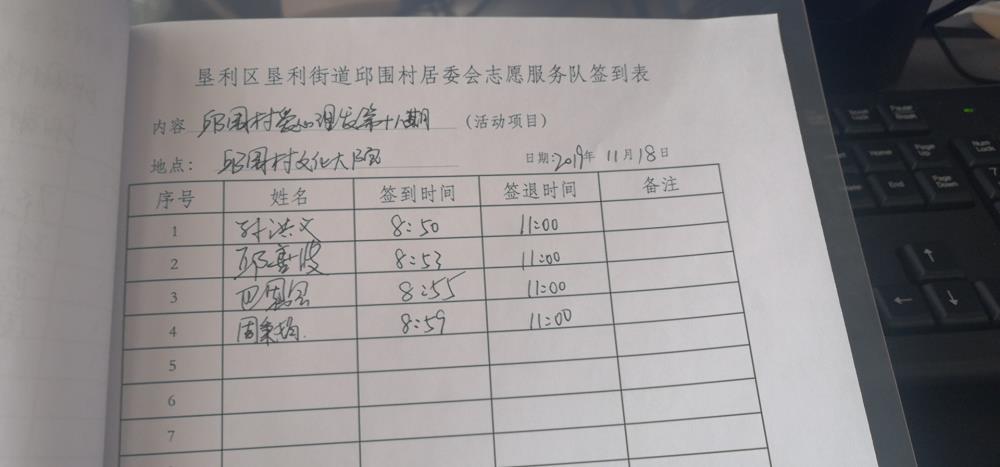 垦利区垦利街道邱围村居委会志愿服务队签到表
内容 邱围村爱心理发第十八期 (活动项目)
地点: 邱围村文化大院 日期:2019年 11月18日
序号 姓名 签到时间 签退时间 备注
1 孙洪文 8:50 11:00
2 邱 8:53 11:00
3 巴 8:55 11:00
4 周 8:59 11:00
5
6
7
Pause Break
Home
Page Up
Num Lock
End
Page Down